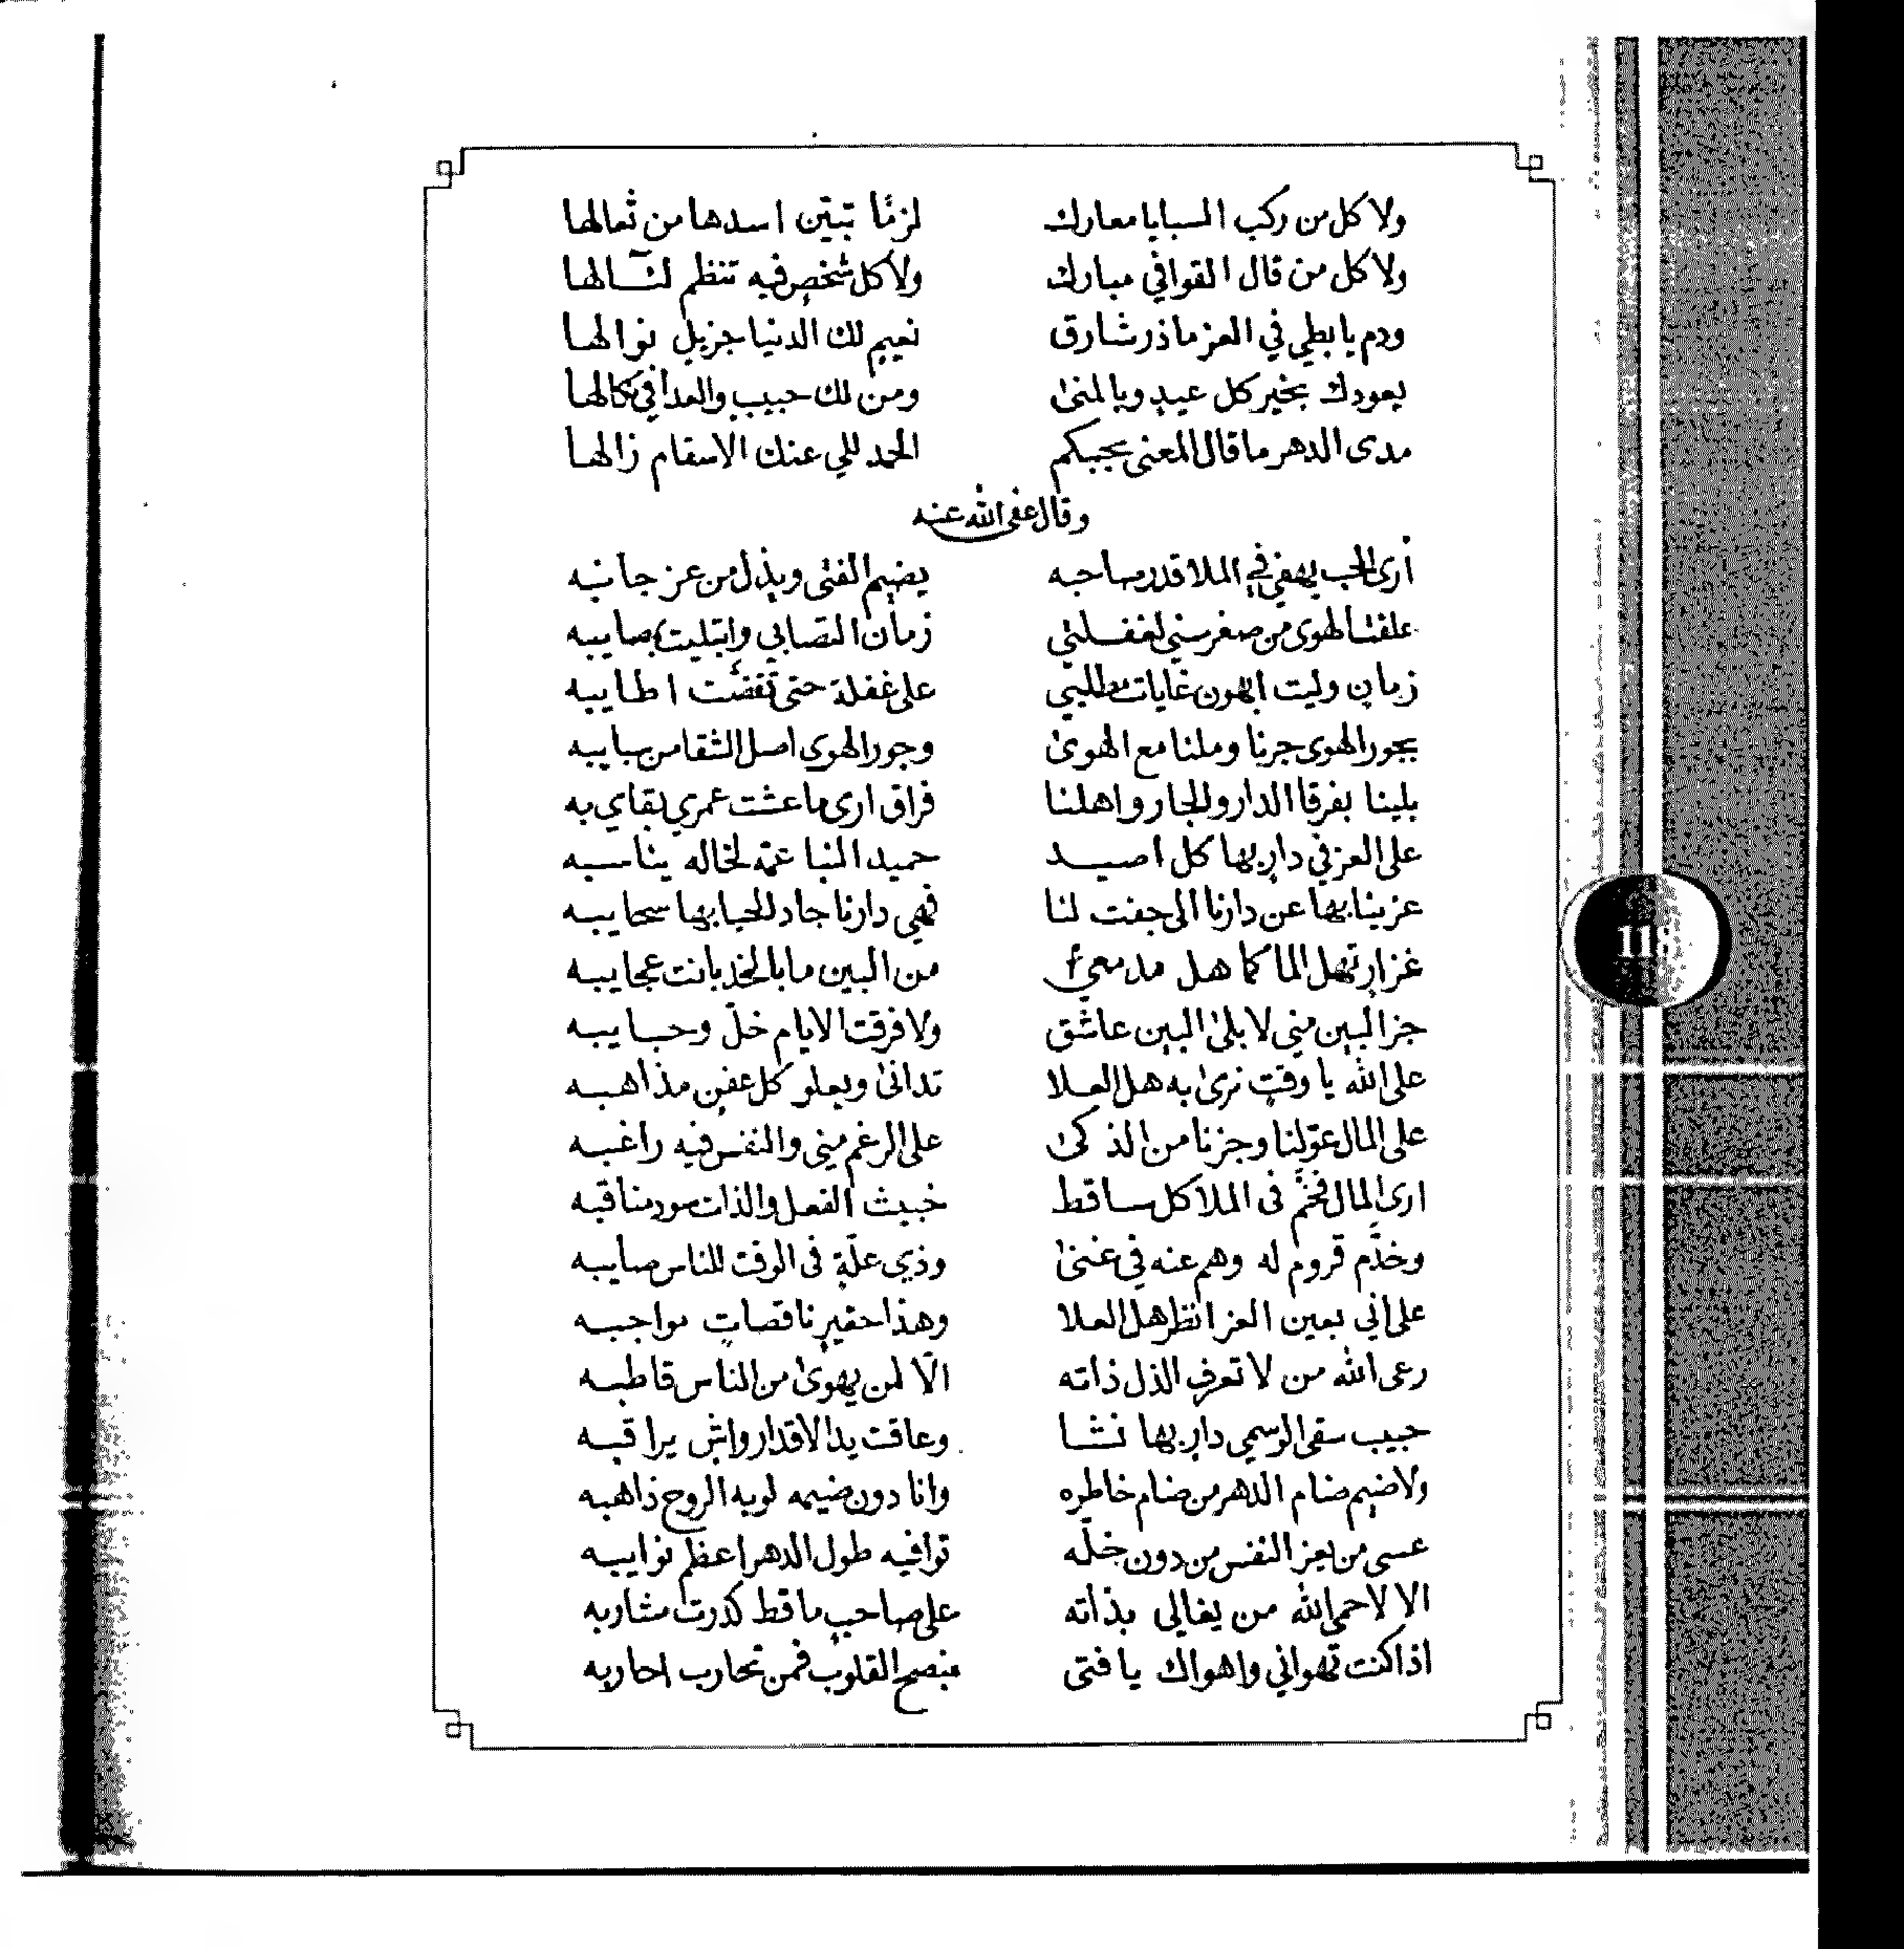 ولا كل من ركب السبايا معارك لزمًا تبيّن اسدها من ثعالها
ولا كل من قال القوافي مبارك ولا كل شخص فيه تنظم لئالها
ودم يا بطي في العز ما ذر شارق نعيم لك الدنيا جزيل نوالها
يعودك بخير كل عيدٍ وبالمنىٰ ومن لك حبيبٍ والعدا في نكالها
مدى الدهر ما قال المعنى بحبكم الحمد للي عنك الاسقام زالها
وقال عفى الله عنه
أرى الحب يهفي في الملا قدر صاحبه يضيم الفتى ويذل من عز جانبه
علقت الهوى من صغر سني لغفلتي زمان التصابي وابتليت بصايبه
زمانٍ وليت الهون غايات مطلبي على غفلة حتى تقضت اطايبه
بجور الهوى جرنا وملنا مع الهوىٰ وجور الهوى اصل الشقا من سبايبه
بلينا بفرقا الدار والجار واهلنا فراق ارى ما عشت عمري بقاي به
على العز في دارٍ بها كل اصيد حميد النبا عمّه لخاله يناسبه
عزينا بها عن دارنا الى جفت لنا فهي دارنا جاد الحيا بها سحايبه
غزارٍ تهل الما كما هل مدمعي من البين ما بالخد بانت عجايبه
جزا البين مني لا بلىٰ البين عاشق ولا فرقت الايام خلّ وحبايبه
على الله يا وقتٍ نرىٰ به هل العلا تدانىٰ ويعلو كل عفنٍ مذاهبه
على المال عوّلنا وجزنا من الذكىٰ على الرغم مني والنفس فيه راغبه
ارى المال فخّم فى الملا كل ساقط خبيث الفعل والذات سود مناقبه
وخدّم قروم له وهم عنه في غنىٰ وذي علّةٍ فى الوقت للناس صايبه
على اني بعين العز انظر هل العلا وهذا حقيرٍ ناقصاتٍ مواجبه
رعى الله من لا تعرف الذل ذاته الّا لمن يهوىٰ من الناس قاطبه
حبيب سقى الوسمي دارٍ بها نشا وعاقت يد الاقدار واشٍ يراقبه
ولا ضيم ضام الدهر من ضام خاطره وانا دون ضيمه لويه الروح ذاهبه
عسى من يعز النفس من دون خلّه توافيه طول الدهر اعظم نوايبه
الا لا حمى الله من يغالي بذاته على صاحبٍ ما قط كدرت مشاربه
اذا كنت تهواني واهواك يا فتى بنصح القلوب فمن تحارب احاربه